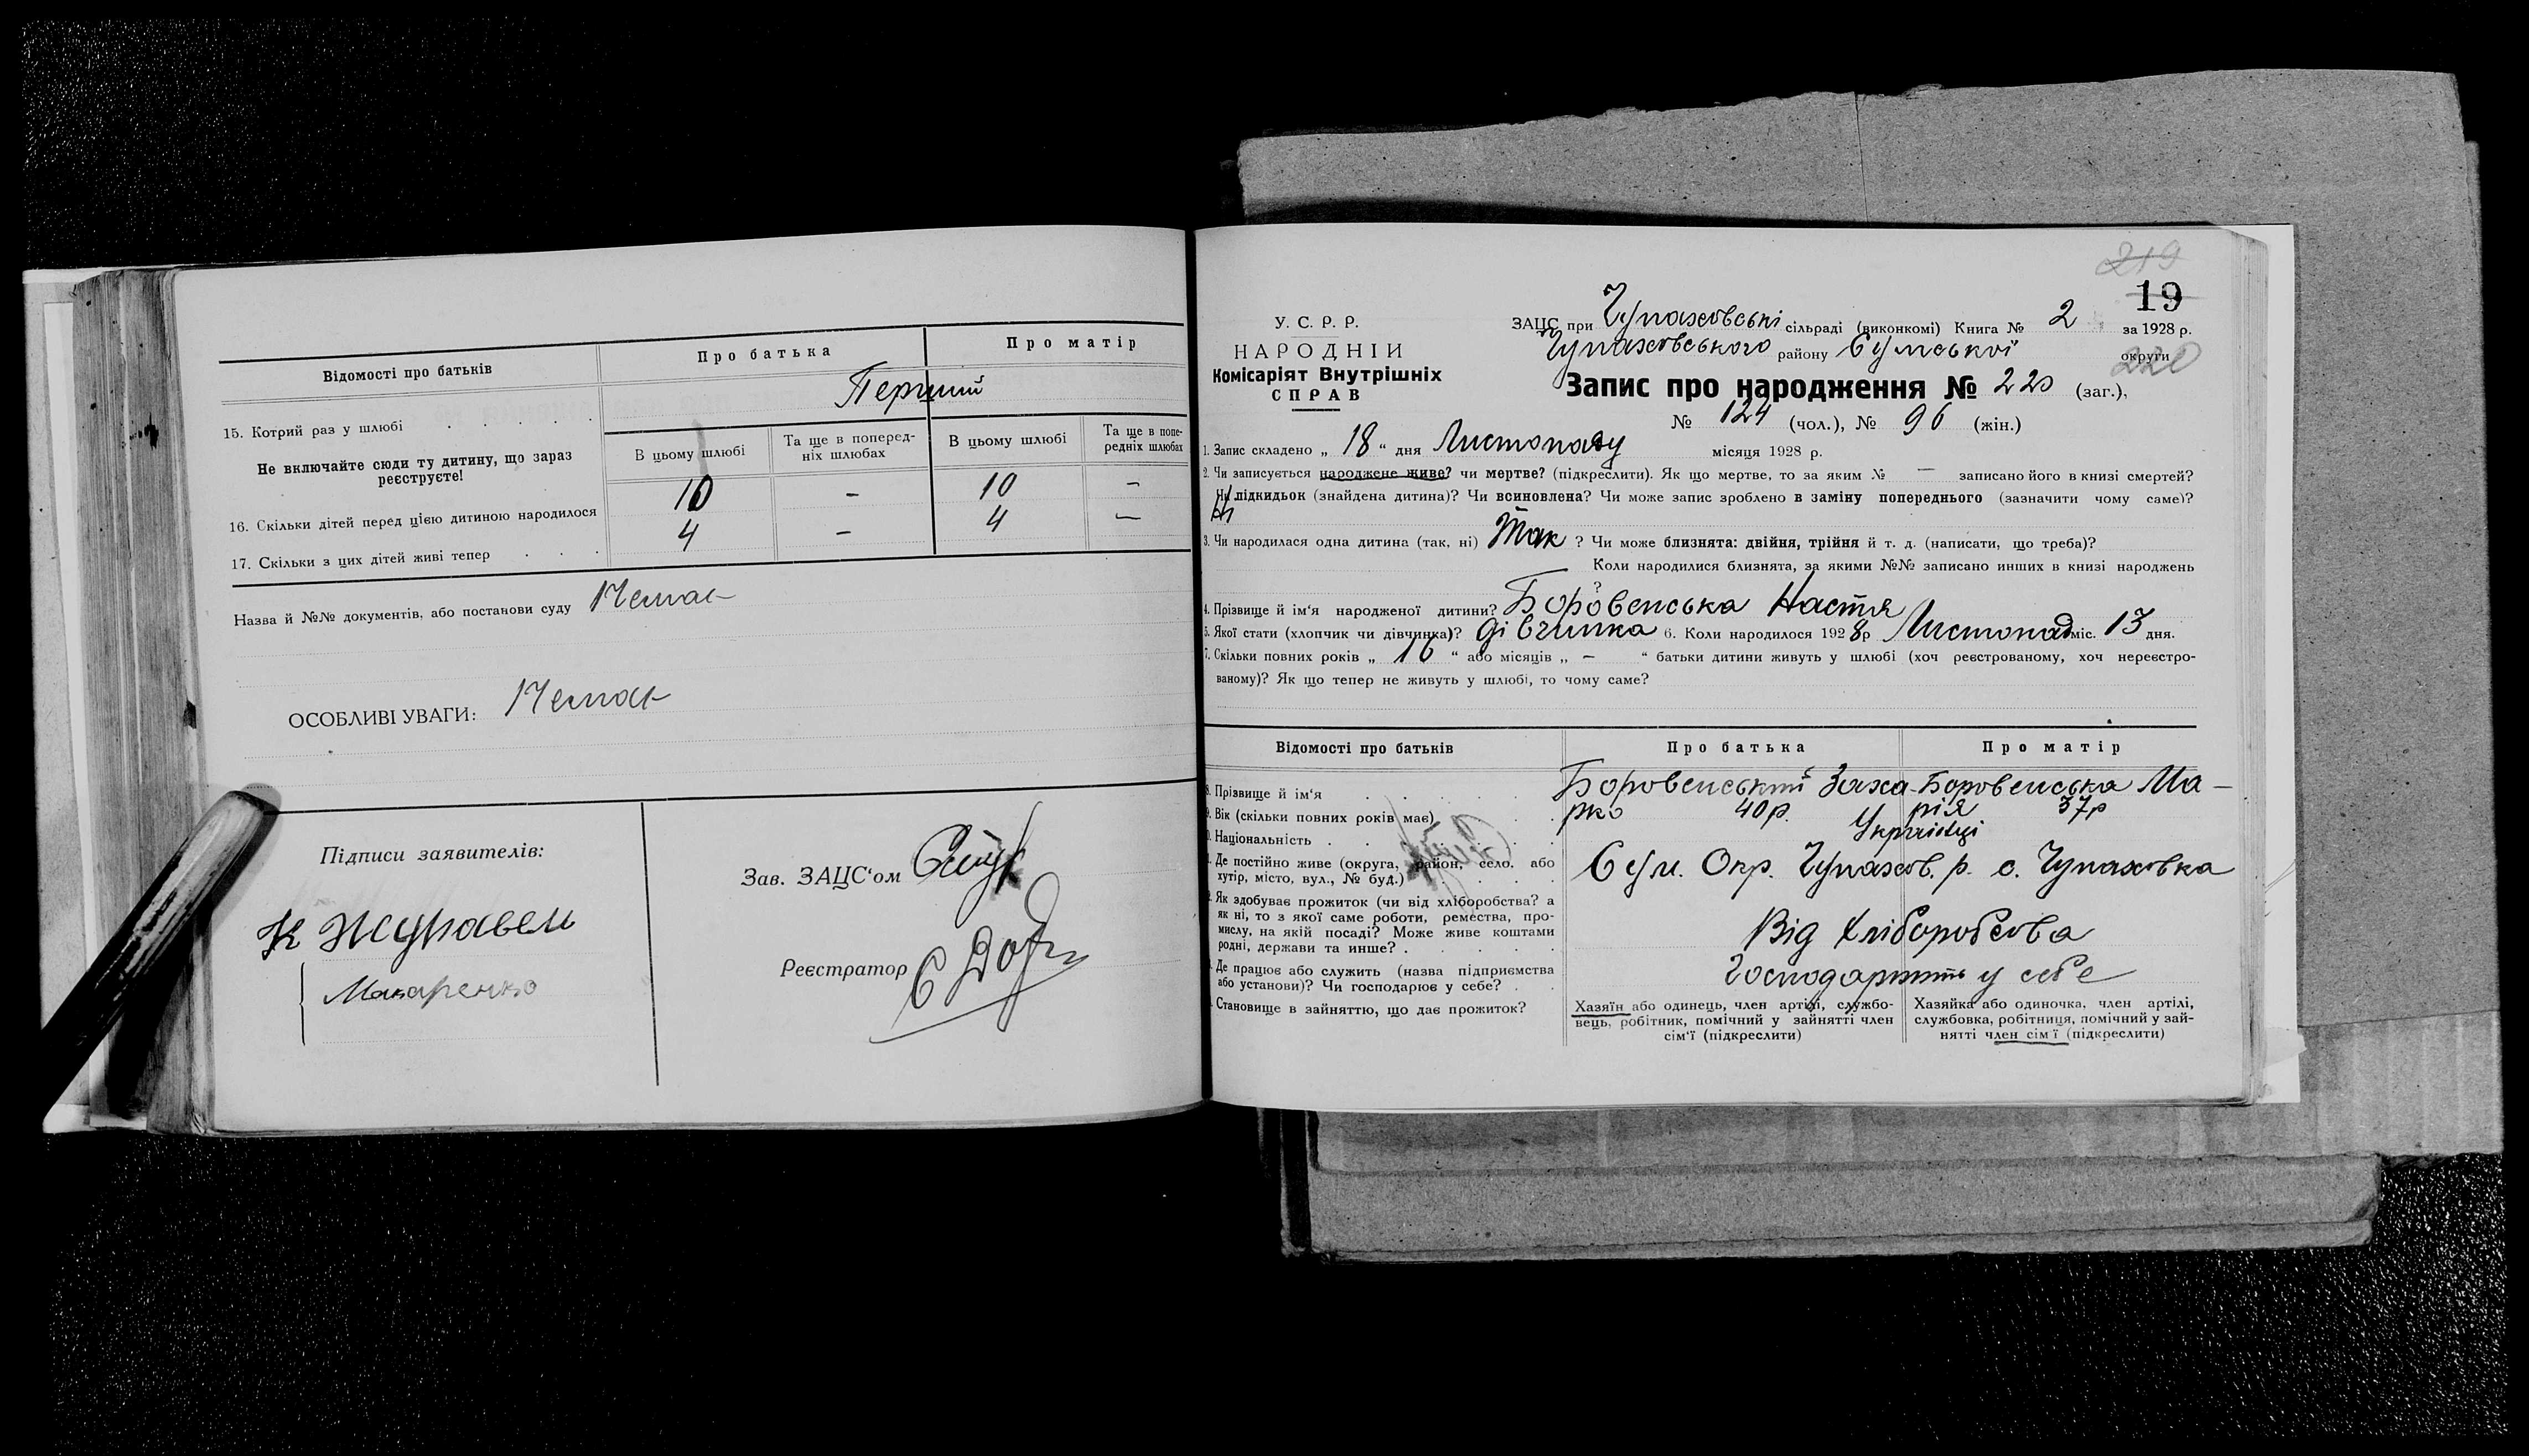 Відомості про батьків
Про батька
Про матір
15. Котрий раз у шлюбі
Перший
Не включайте сюди ту дитину, що зараз реєструєте!
В цьому шлюбі
Та ще в поперед-
ніх шлюбах
В цьому шлюбі
Та ще в попе-
редніх шлюбах
16. Скільки дітей перед цією дитиною народилося
10 — 10 —
17. Скільки з цих дітей живі тепер
4 — 4 —
Назва й №№ документів, або постанови суду Немає
ОСОБЛИВІ УВАГИ: Немає
Підписи заявителів:
К Журавель
Макаренко
Зав. ЗАЦС‘ом
Реєстратор
219
19
220
У. С. Р. Р.
НАРОДНІЙ
Комісаріят Внутрішніх
СПРАВ
ЗАЦС при Чупаховські сільраді (виконкомі) Книга № 2 за 1928 р.
Чупаховського району Сумської округи
Запис про народження № 220 (заг.),
№ 124 (чол.), № 96 (жін.)
1. Запис складено „ 18 “ дня Листопаду місяця 1928 р.
2. Чи записується народжене живе? чи мертве? (підкреслити). Як що мертве, то за яким № — записано його в книзі смертей?
Чи підкидьок (знайдена дитина)? Чи всиновлена? Чи може запис зроблено в заміну попереднього (зазначити чому саме)?
3. Чи народилася одна дитина (так, ні) Так ? Чи може близнята: двійня, трійня й т. д. (написати, що треба)?
Коли народилися близнята, за якими №№ записано инших в книзі народжень
?
4. Прізвище й ім‘я народженої дитини? Боровенська Настя
5. Якої стати (хлопчик чи дівчинка)? дівчинка 6. Коли народилося 1928р Листопад міс. 13 дня.
7. Скільки повних років „ 16 “ або місяців „ — “ батьки дитини живуть у шлюбі (хоч реєстрованому, хоч нереєстро-
ваному)? Як що тепер не живуть у шлюбі, то чому саме?
Відомості про батьків
Про батька
Про матір
8. Прізвище й ім‘я
Боровенський Заха-
Боровенська Ма-
9. Вік (скільки повних років має)
рко 40р.
рія 37р
0. Національність
Українці
Де постійно живе (округа, район, село. або
хутір, місто, вул., № буд.)
Сум. Окр. Чупахов. р. с. Чупаховка
Як здобуває прожиток (чи від хліборобства? а
як ні, то з якої саме роботи, ремества, про-
мислу, на якій посаді? Може живе коштами
родні, держави та инше?
Від Хліборобсва
Де працює або служить (назва підприємства
або установи)? Чи господарює у себе?
Господарюють у себе
Становище в зайняттю, що дає прожиток?
Хазяїн або одинець, член артілі, службо-
вець, робітник, помічний у зайнятті член
сім‘ї (підкреслити)
Хазяйка або одиночка, член артілі,
службовка, робітниця, помічний у зай-
нятті член сім‘ї (підкреслити)